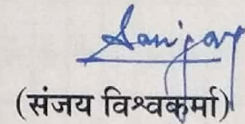 Sanjay
(संजय विश्वकर्मा)